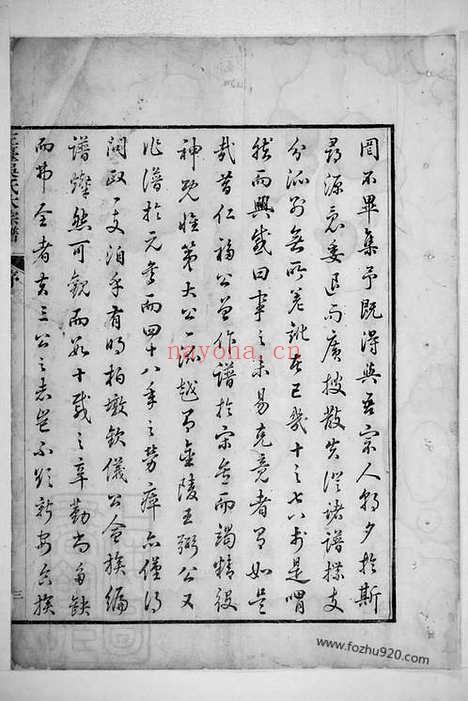 罔不畢集予既得與吾宗人朝夕於斯
尋源意委退而廣搜散失從堵譜探支
分派別無所差訛者已幾十之七八於是喟
然而興感曰事之未易克竟者有如是
哉昔仁福公曾作譜於宋矣而竭精役
神既惟第大公一派越有金陵王弼公又
作譜於元矣而四十八年之勞瘁亦僅得
開政一支洎乎有明柏墩欽儀公會族編
譜燦然可觀而以十載之辛勤尚多缺
而弗全者夫三公之志豈不欲新安合族
氏大宗譜
序
三
nayona.cn
www.fozhu920.com